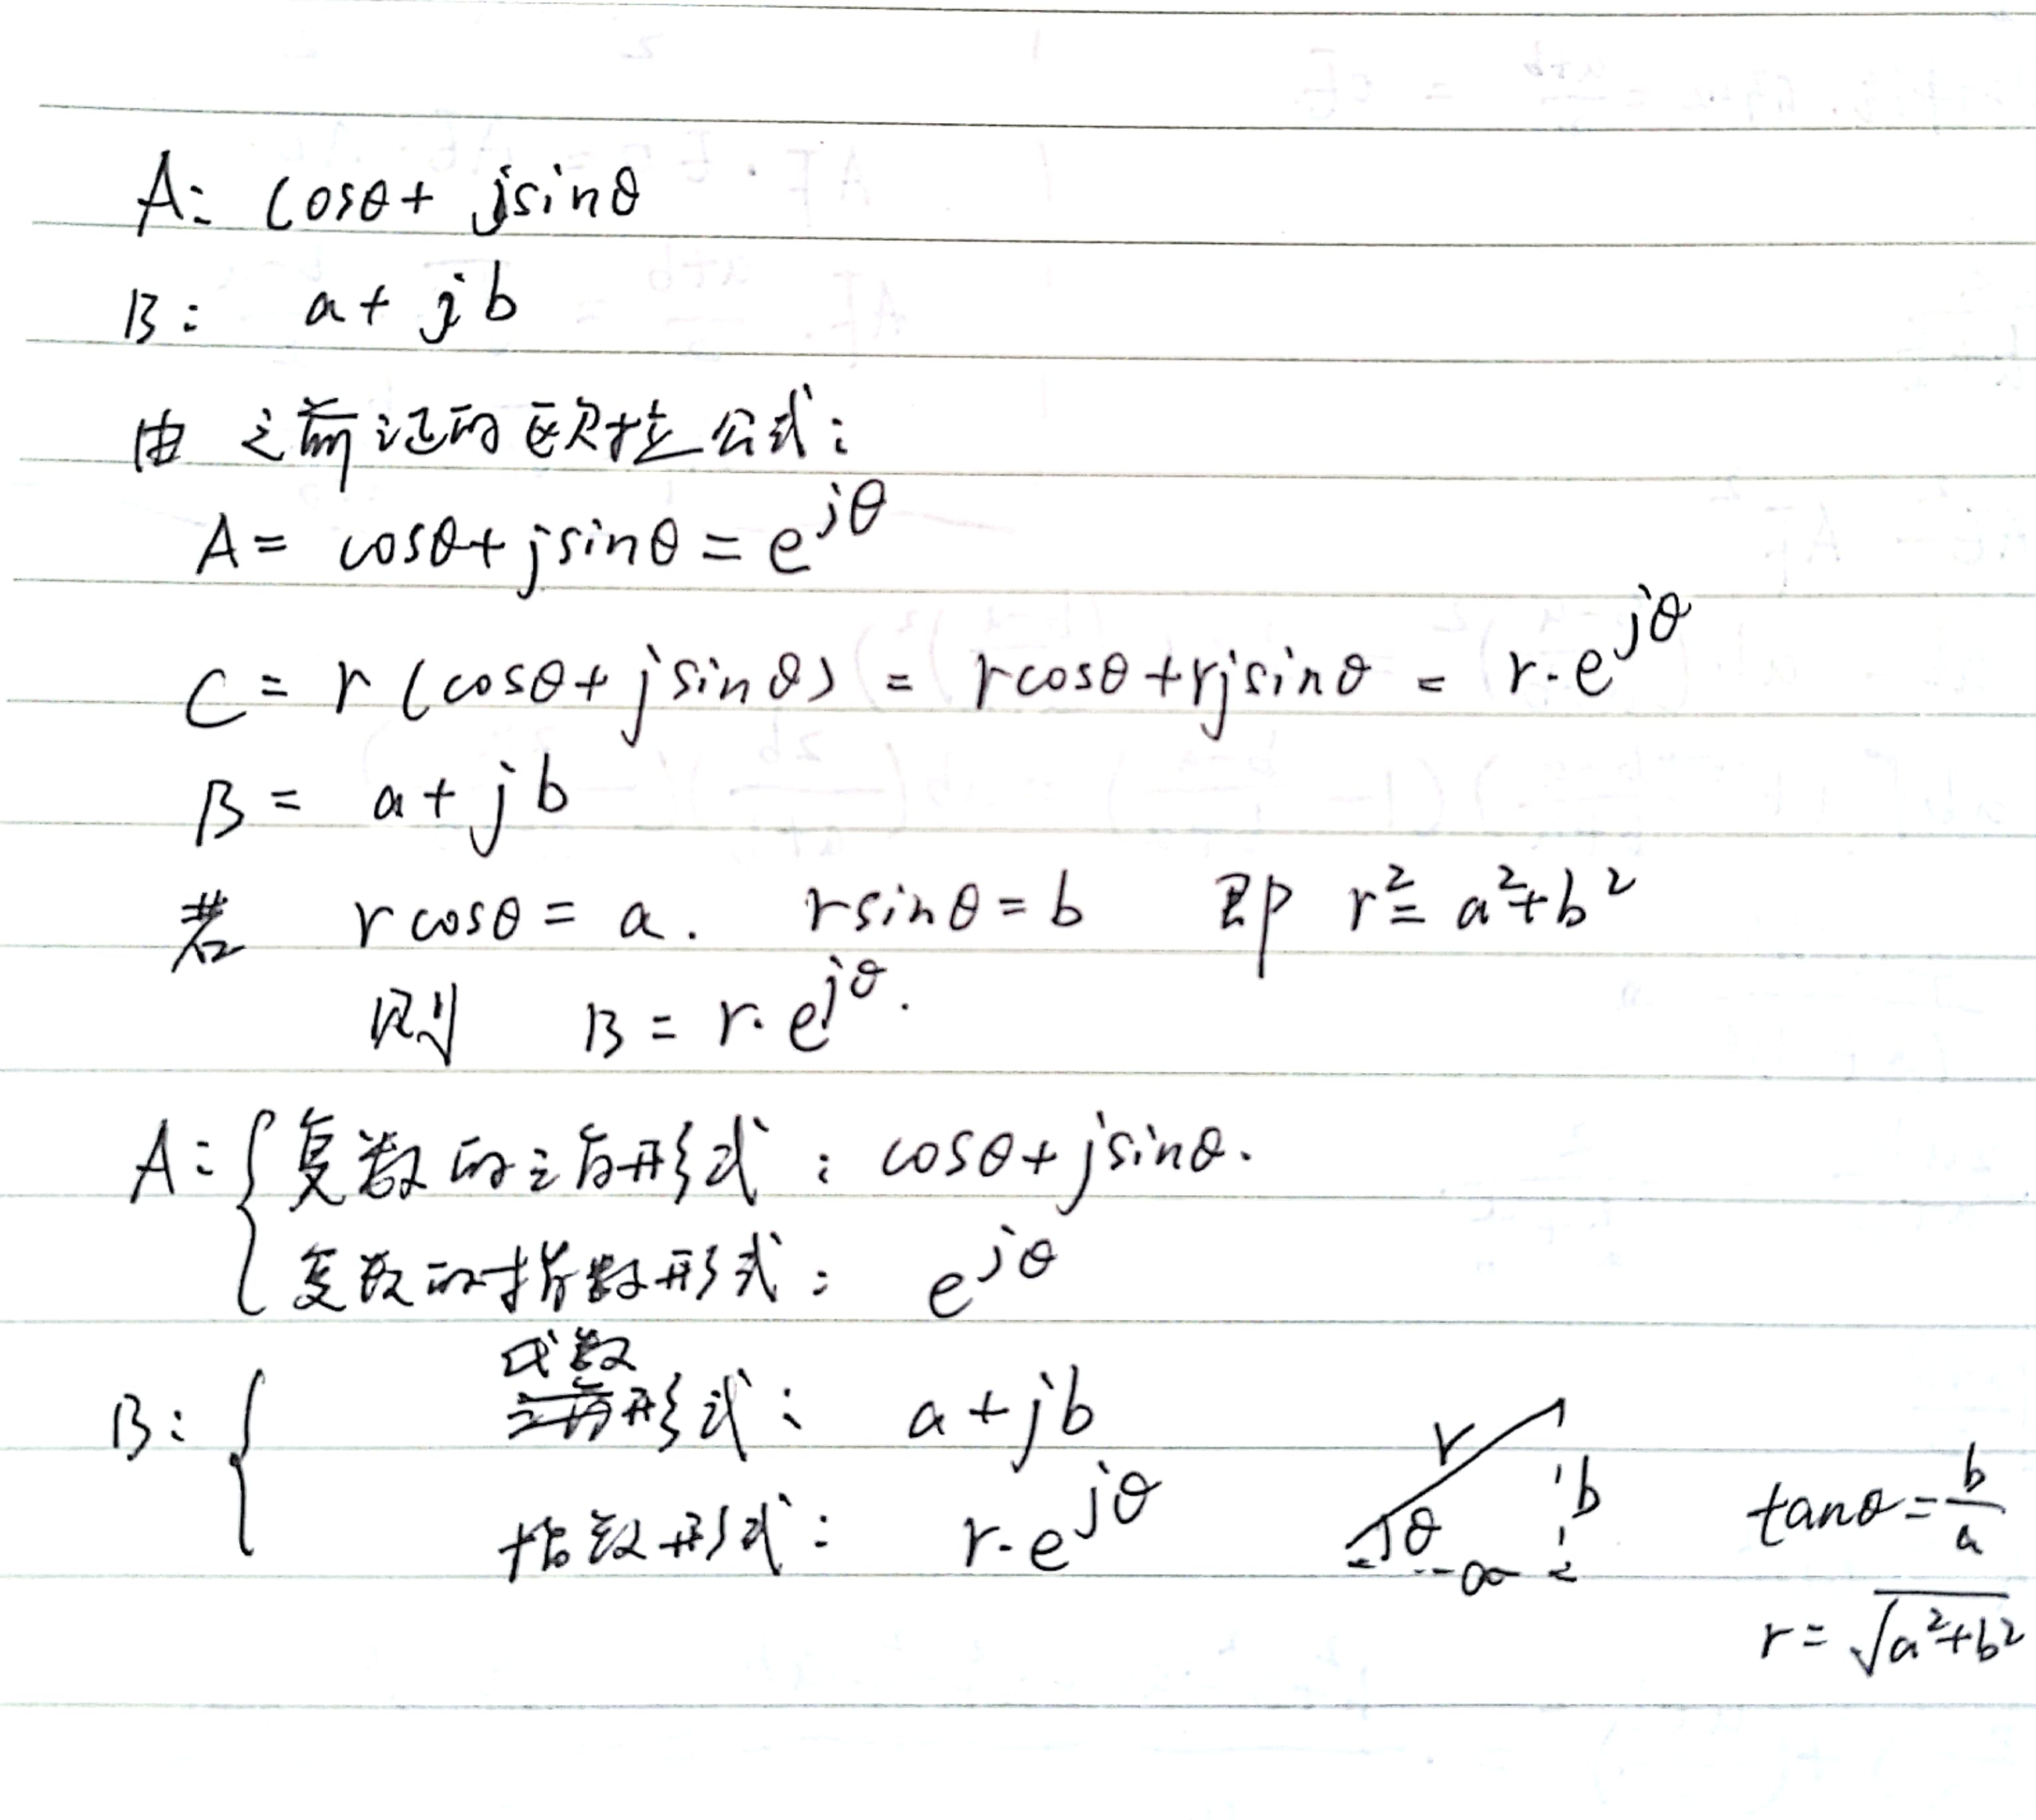 A: cosθ + jsinθ
B: a + jb
由之前证的欧拉公式:
A = cosθ + jsinθ = e^{jθ}
C = r (cosθ + jsinθ) = rcosθ + rjsinθ = r·e^{jθ}
B = a + jb
若 rcosθ = a. rsinθ = b 即 r² = a² + b²
则 B = r·e^{jθ}.
A: { 复数的三角形式: cosθ + jsinθ.
复数的指数形式: e^{jθ}
代数
B: { 三角形式: a + jb
指数形式: r·e^{jθ}
r
θ
b
a
tanθ = b/a
r = √(a² + b²)